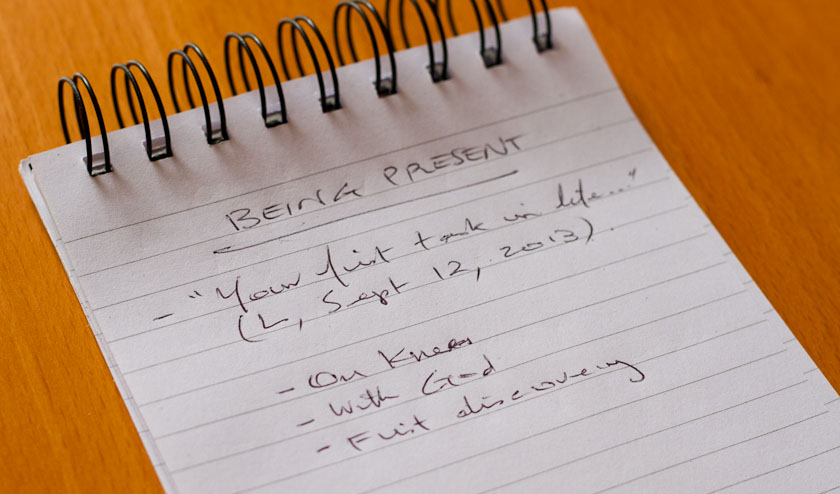 BEING PRESENT
- "Your first task in life..."
(L, Sept 12, 2013).
- On Knees
- With God
- First discovery